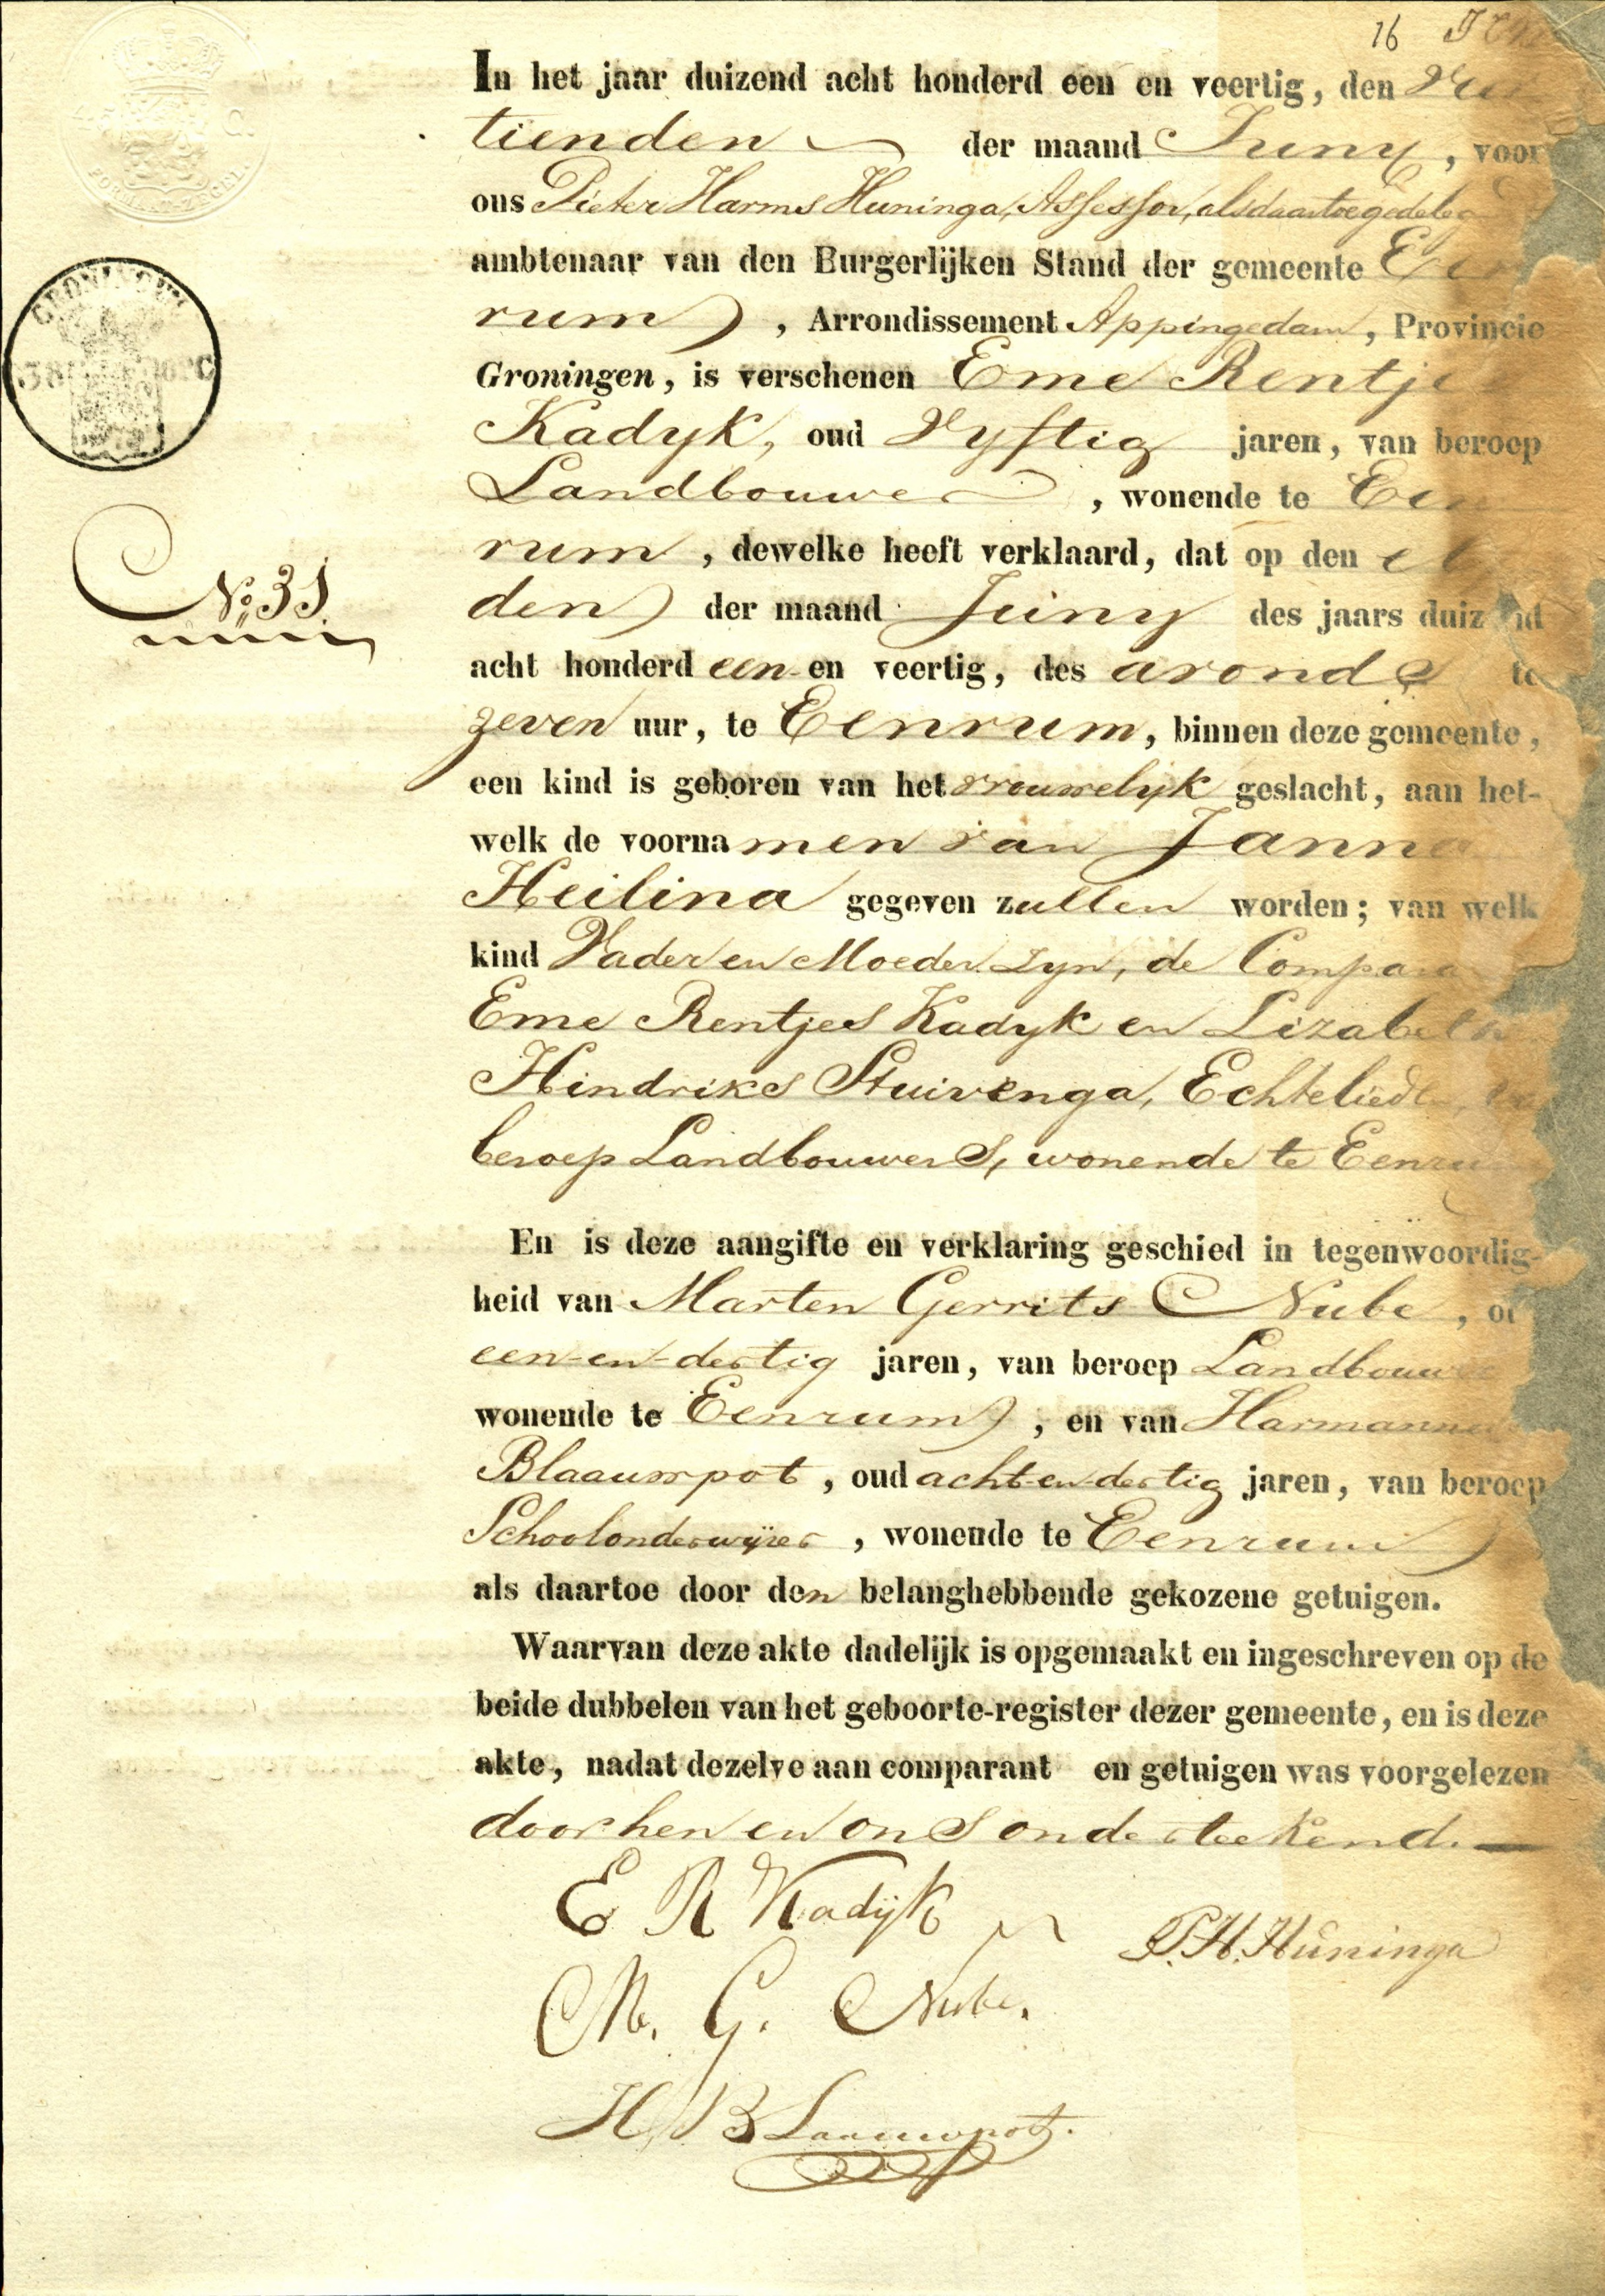 16
In het jaar duizend acht honderd een en veertig, den
tienden der maand Juny, voor
ons Pieter Harms Huninga, Assessor, als daartoe gedele
ambtenaar van den Burgerlijken Stand der gemeente Een
rum, Arrondissement Appingedam, Provincie
Groningen, is verschenen Eme Rentje
Kadyk, oud Vyftig jaren, van beroep
Landbouwer, wonende te Een
rum, dewelke heeft verklaard, dat op den
No 31
den der maand Juny des jaars duizend
acht honderd een en veertig, des avonds te
zeven uur, te Eenrum, binnen deze gemeente,
een kind is geboren van het vrouwelyk geslacht, aan het-
welk de voornamen van Janna
Heilina gegeven zullen worden; van welk
kind Vader en Moeder zyn, de Compara
Eme Rentjes Kadyk en Lizabeth
Hindriks Stuivenga, Echtelieden,
beroep Landbouwers, wonende te Eenrum
En is deze aangifte en verklaring geschied in tegenwoordig-
heid van Marten Gerrits Nube, ou
een-en-dertig jaren, van beroep Landbouwer
wonende te Eenrum, en van Harmannus
Blaauwpot, oud acht-en-dertig jaren, van beroep
Schoolonderwijzer, wonende te Eenrum
als daartoe door den belanghebbende gekozene getuigen.
Waarvan deze akte dadelijk is opgemaakt en ingeschreven op de
beide dubbelen van het geboorte-register dezer gemeente, en is deze
akte, nadat dezelve aan comparant en getuigen was voorgelezen
door hen en ons onderteekend.
E R Kadijk
P. H. Huninga
M. G. Nube.
H. Blaauwpot.